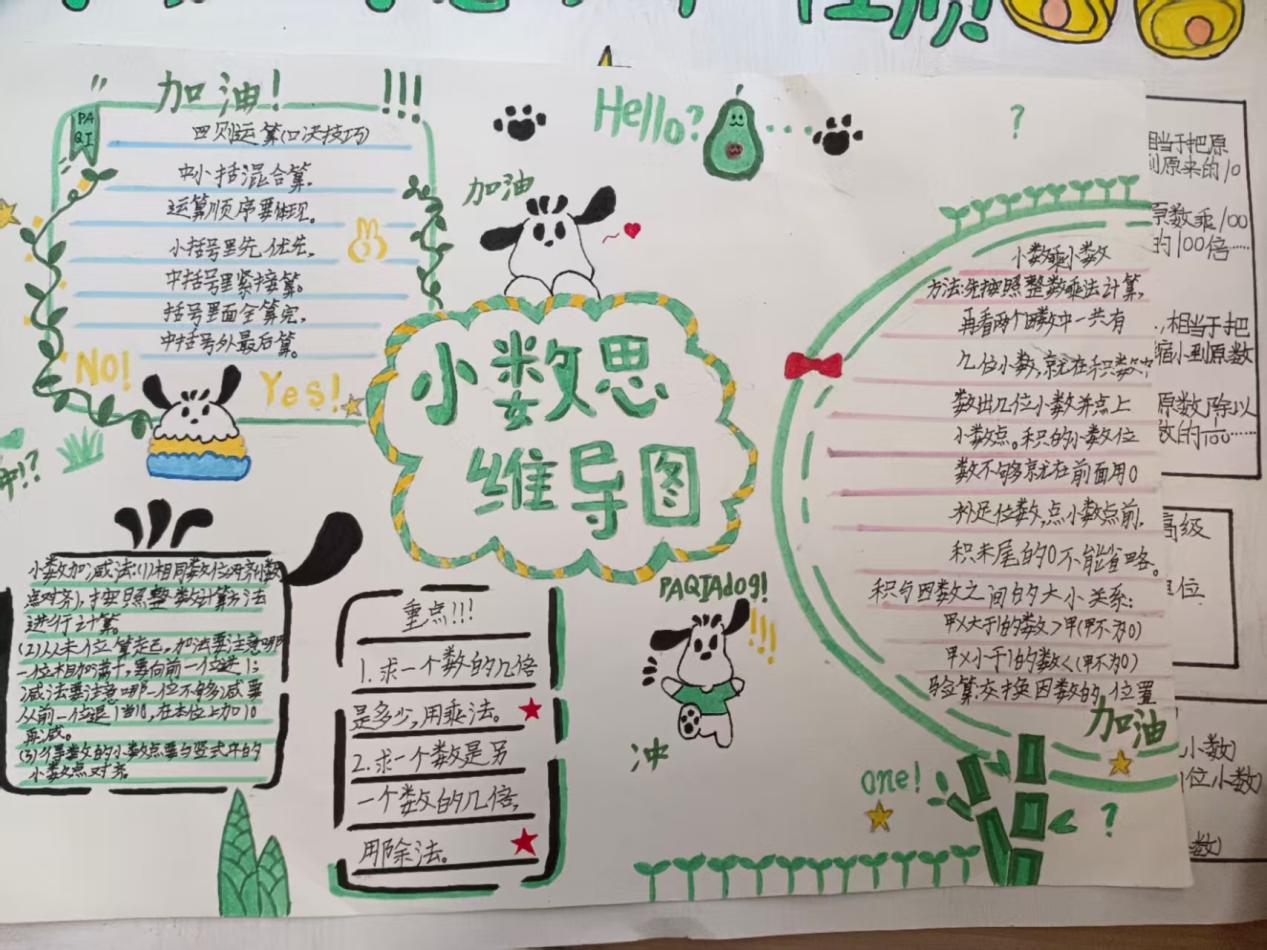 加油! !!!
PA
QI
四则运算(口决技巧)
中小括混合算。
运算顺序要体现。
小括号里先优先,
中括号里紧接算。
括号里面全算完,
中括号外最后算。
NO!
Yes!
Hello?
加油
小数思
维导图
?
小数乘小数
方法:先按照整数乘法计算,
再看两个因数中一共有
几位小数,就在积数中
数出几位小数并点上
小数点。积的小数位
数不够就在前面用0
补足位数,点小数点前,
积末尾的0不能省略。
积与因数之间的大小关系:
甲×大于1的数>甲(甲不为0)
甲×小于1的数<(甲不为0)
验算交换因数的位置
加油
小数加减法:(1)相同数位对齐(小数
点对齐),按照整数计算方法
进行计算。
(2)从末位算起,加法要注意哪
一位相加满十,要向前一位进1;
减法要注意哪一位不够减要
从前一位退1当10,在本位上加10
再减。
(3)得数的小数点要与竖式中的
小数点对齐。
重点!!!
1.求一个数的几倍
是多少,用乘法。
2.求一个数是另
一个数的几倍,
用除法。
PAQIAdog!
!!!
冲
one!
?
相当于把原
到原来的10
原数乘100
的100倍……
,相当于把
缩小到原数
原数除以
数的1/100……
高级
单位
小数)
位小数)
数)